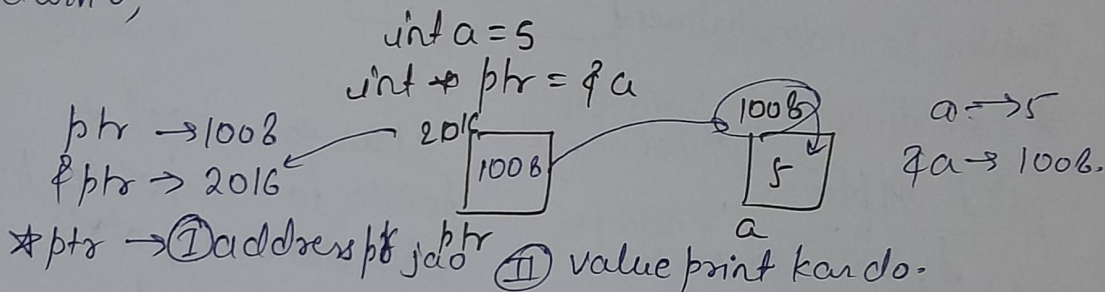 int a = 5
int * ptr = &a
ptr → 1008
&ptr → 2016
2016
1008
ptr
1008
5
a
a → 5
&a → 1008.
*ptr → Ⓘ address pr jao Ⓘ Ⓘ value print kar do.